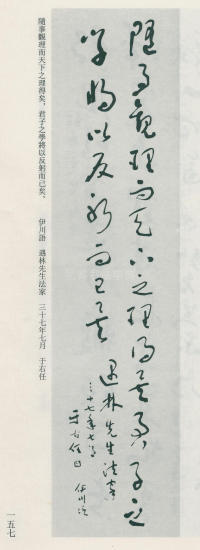 隨事觀理而天下之理得矣君子之
學將以反躬而已矣
遇林先生法家
三十七年七月
于右任
伊川語
隨事觀理而天下之理得矣，君子之學將以反躬而已矣。　伊川語　遇林先生法家　三十七年七月　于右任
一五七